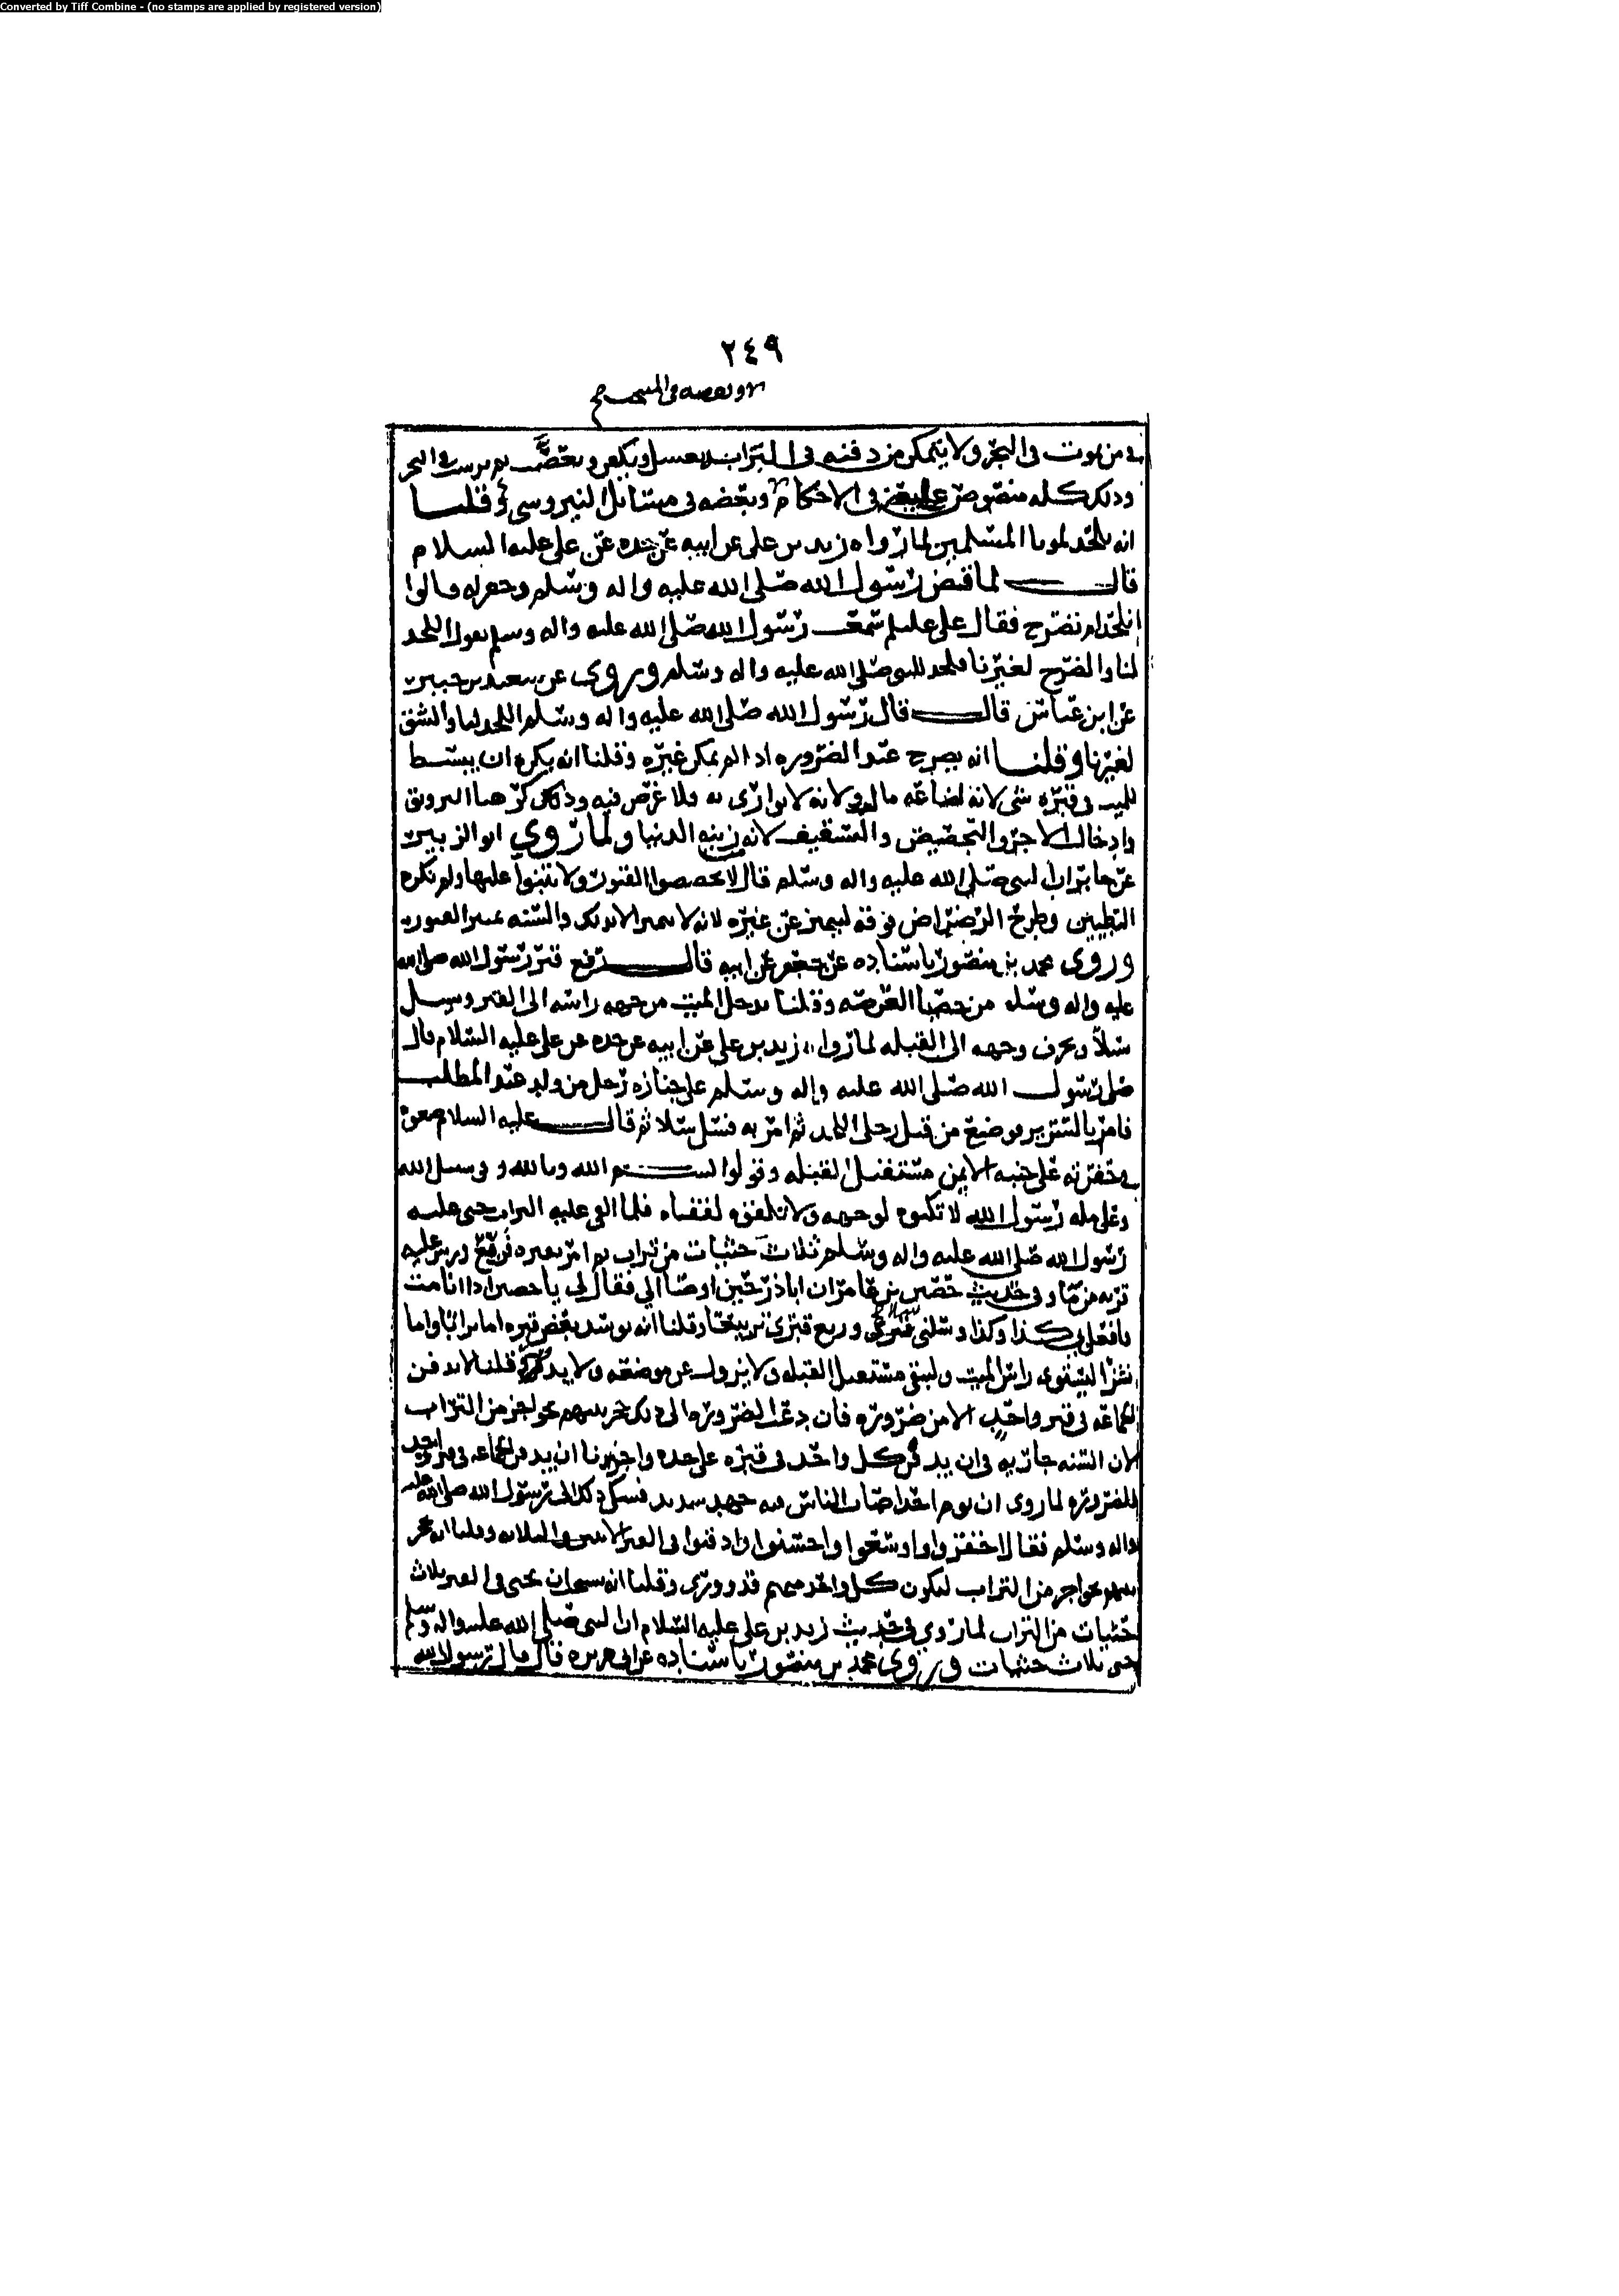 Converted by Tiff Combine - (no stamps are applied by registered version)
٢٤٩
وبعضه في المنتخب
في من يموت في البحر ولا يتمكن من دفنه في التراب يغسل ويكفن ثم يرسب في البحر
وذلك كله منصوص عليه في الاحكام وبعضه في مسائل النيروسي وقلنا
انه يلحد لموتا المسلمين لما رواه زيد بن علي عن ابيه عن جده عن علي عليه السلام
قال لما قبض رسول الله صلى الله عليه واله وسلم وحفر له قالوا
انلحد ام نضرح فقال علي عليلم سمعت رسول الله صلى الله عليه واله وسلم يقول اللحد
لنا والضرح لغيرنا فلحد للنبي صلى الله عليه واله وسلم وروي عن سعيد بن جبير
عن ابن عباس قال قال رسول الله صلى الله عليه واله وسلم اللحد لنا والشق
لغيرنا وقلنا انه يضرح عند الضروره اذا لم يمكن غيره وقلنا انه يكره ان يبسط
للميت في قبره شي لانه اضاعه مال ولانه لا يوارى به فلا غرض فيه وكذلك كرهنا التزويق
وادخال الاجر والتجصيص والتسقيف لانه زينه الدنيا ولما روي ابو الزبير
عن جابر ان النبي صلى الله عليه واله وسلم قال لا تجصصوا القبور ولا تبنوا عليها ولم نكره
التطيين وطرح الرضراض فوقه ليميز عن غيره لانه لا يتميز الا بذلك والسنه تمييز القبور
وروى محمد بن منصور باسناده عن جعفر عن ابيه قال رفع قبر رسول الله صلى الله
عليه واله وسلم من حصبا العرصه وقلنا يدخل الميت من جهه راسه الى القبر ويسل
سلا ويحرف وجهه الى القبله لما رواه زيد بن علي عن ابيه عن جده عن علي عليه السلام قال
صلى رسول الله صلى الله عليه واله وسلم على جنازه رجل من ولد عبد المطلب
فامر بالسرير فوضع من قبل رجلي اللحد ثم امر به فسل سلا ثم قال عليه السلام ضعوه
في حفرته على جنبه الايمن مستقبل القبله وقولوا بسم الله وبالله وفي سبيل الله
وعلى مله رسول الله لا تكبوه لوجهه ولا تلقوه لقفاه فلما القي عليه التراب حثى عليه
رسول الله صلى الله عليه واله وسلم ثلاث حثيات من تراب ثم امر بقبره فربع ورش عليه
قربه من ما وفي حديث حضين بن عامر ان اباذر حين اوصا الي فقال لي يا حضين اذا انا مت
فافعل بي كذا وكذا وسلني سلا وربع قبري تربيعا وقلنا انه يوسد بعض قبره اما ترابا واما
نشزا ليستوي راس الميت وليبقى مستقبل القبله ولا يزول عن موضعه قلنا لا يدفن
الجماعه في قبر واحد الا من ضروره فان دعت الضروره الى ذلك حجز بينهم بحواجز من التراب
لان السنه جاريه في ان يدفن كل واحد في قبره على حده واجزنا ان يدفن الجماعه في قبر واحد
للضروره لما روى ان يوم احد اصاب الناس فيه جهد شديد فشكي ذلك الى رسول الله صلى الله عليه
واله وسلم فقال احفروا واوسعوا واحسنوا وادفنوا في القبر الاثنين والثلاثه وقلنا انه يحجز
بينهم بحواجز من التراب ليكون كل واحد منهم قد ووري وقلنا انه يستحب ان يحثى في القبر ثلاث
حثيات من التراب لما روي في حديث زيد بن علي عليه السلام ان النبي صلى الله عليه واله وسلم
حثى ثلاث حثيات وروى محمد بن منصور باسناده عن ابي هريره قال قال رسول الله